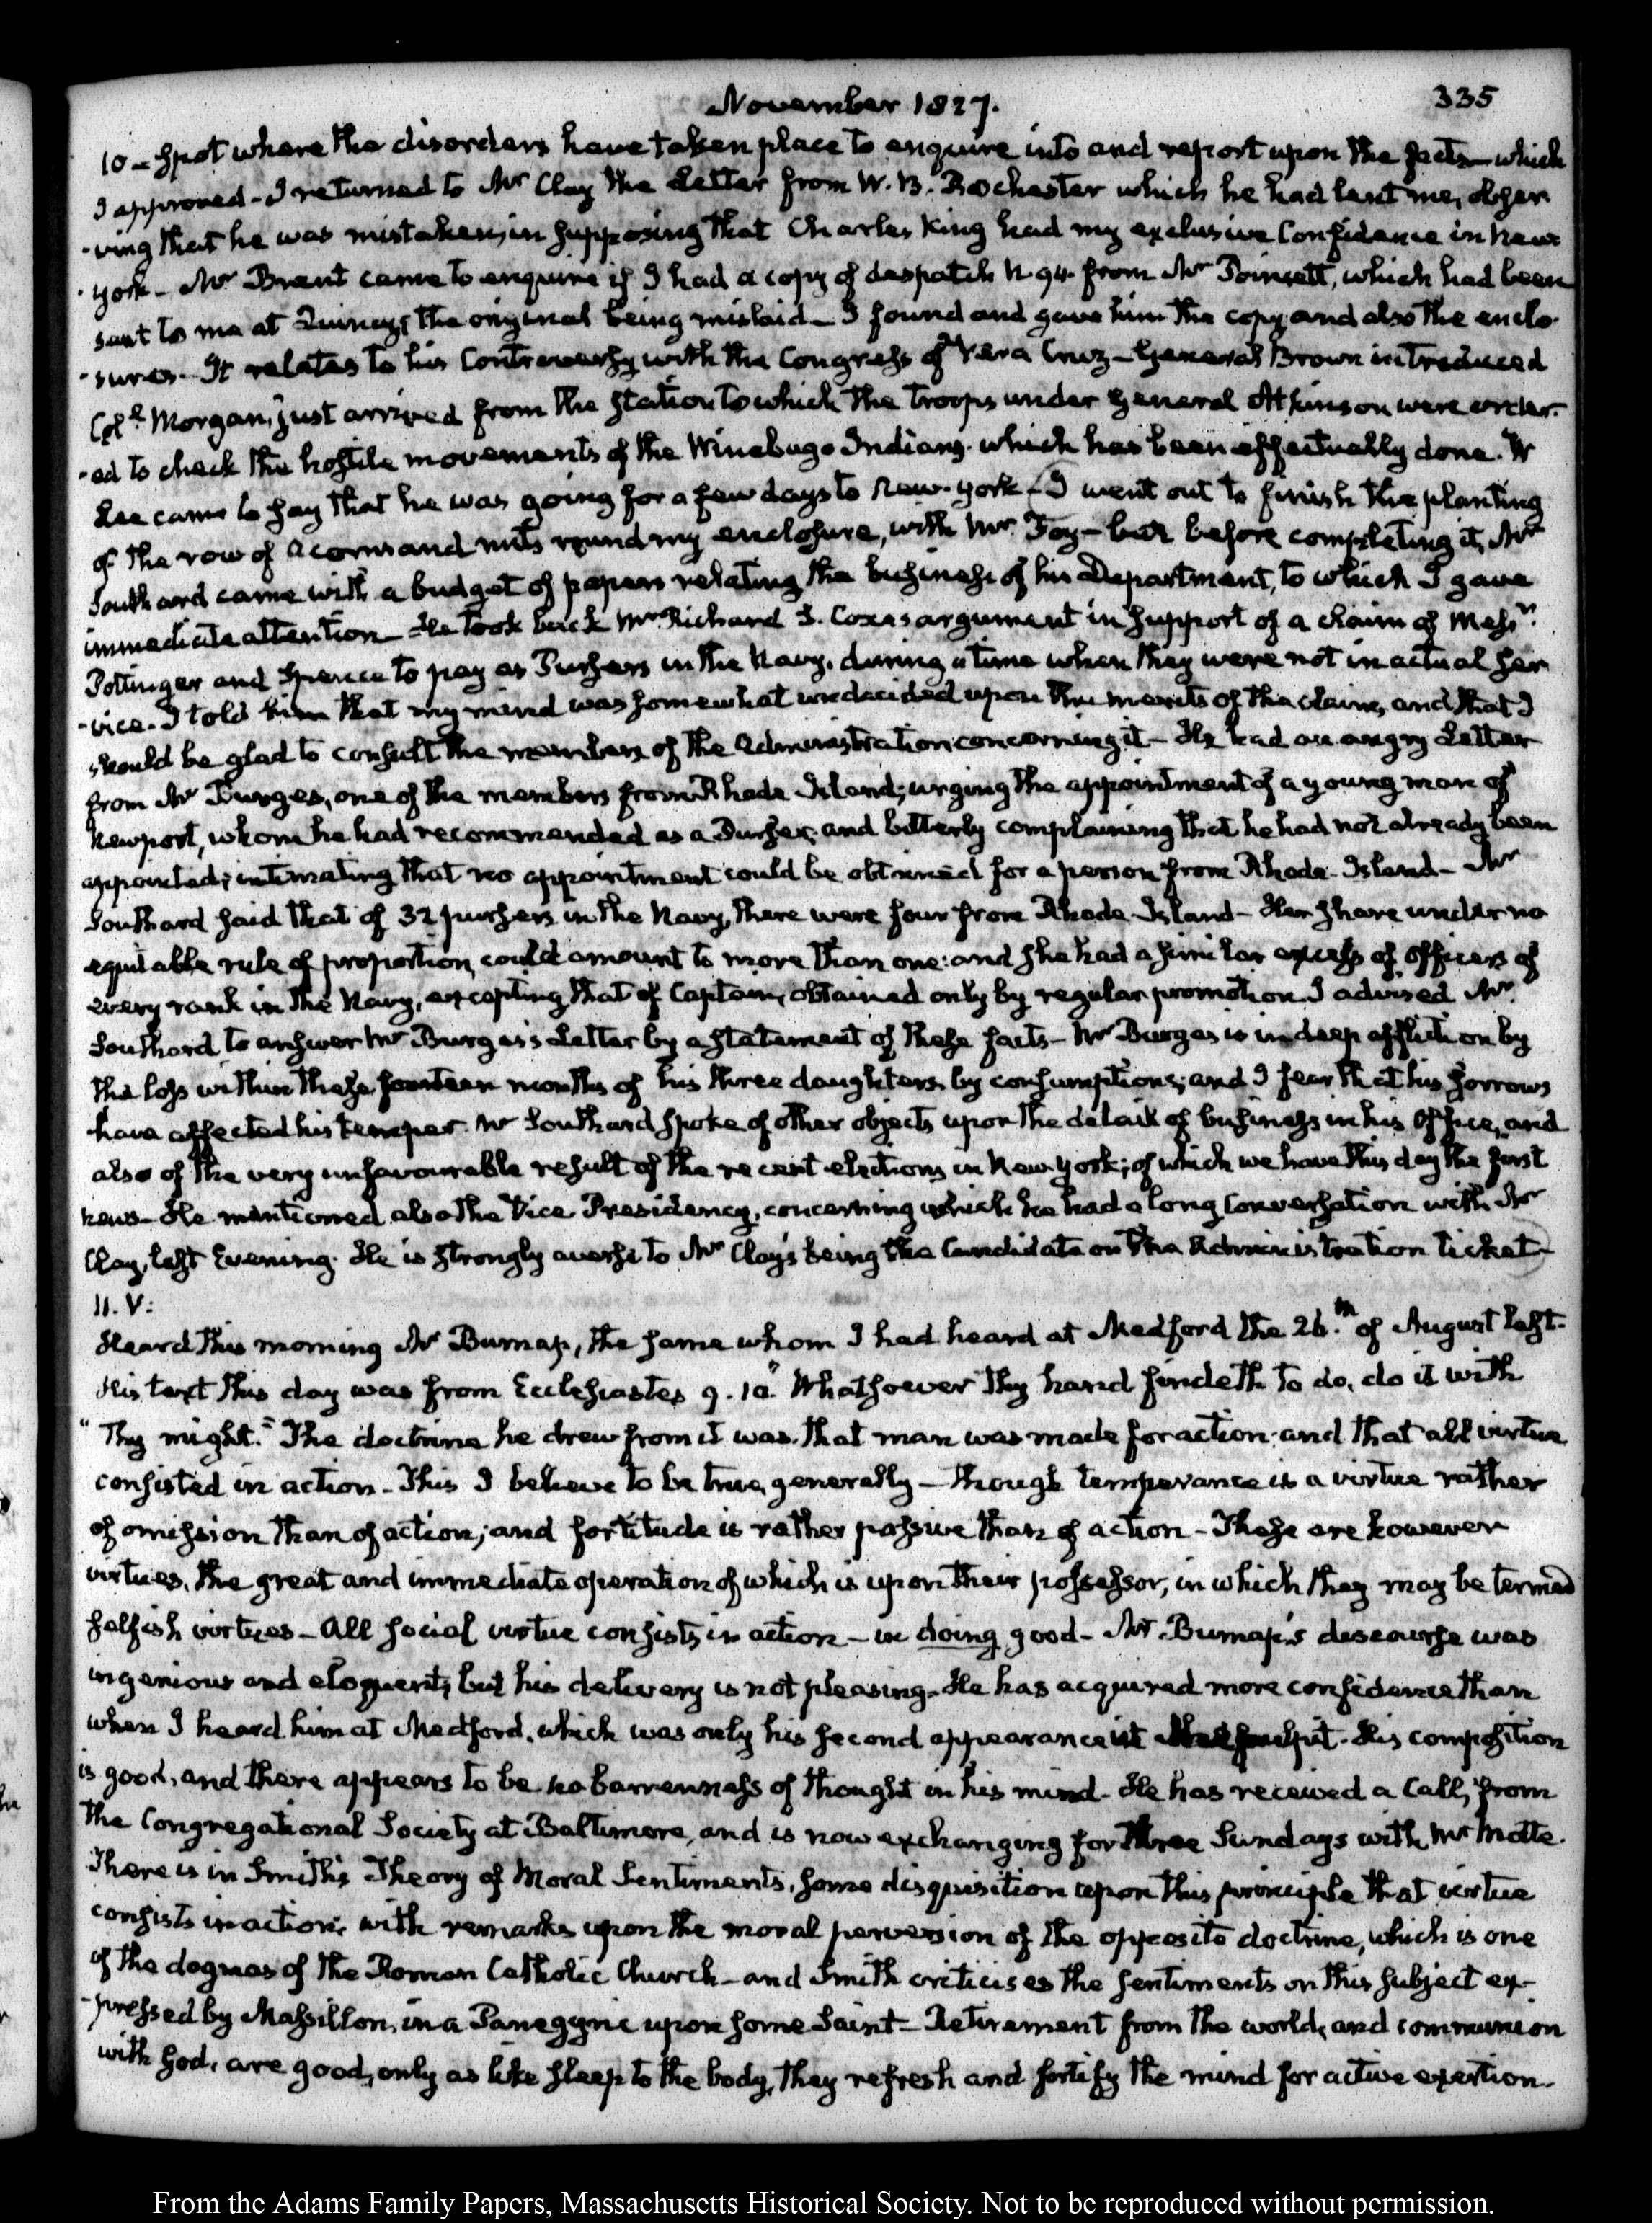 November 1827.
335
10 - spot where the disorders have taken place to enquire into and report upon the facts - which
I approved - I returned to Mr Clay the Letter from W. B. Rochester which he had lent me, obser
-ving that he was mistaken, in supposing that Charles King had my exclusive Confidence in New
York - Mr Brent came to enquire if I had a copy of despatch N. 94. from Mr Poinsett, which had been
sent to me at Quincy; the original being mislaid - I found and gave him the copy and also the enclo-
-sures. It relates to his Controversy with the Congress of Vera Cruz - General Brown introduced
Coll. Morgan, just arrived from the station to which the troops under General Atkinson were order-
-ed to check the hostile movements of the Winebago Indians. which has been effectually done. Dr
Lee came to say that he was going for a few days to New-York - I went out to finish the planting
of the row of acorns and nuts round my enclosure, with Mr Foy - but before completing it, Mr
Southard came with a budget of papers relating the business of his Department, to which I gave
immediate attention - He took back Mr Richard S. Coxe's argument in support of a claim of Messrs.
Pottinger and Spence to pay as Pursers in the Navy, during a time when they were not in actual ser
-vice. I told him that my mind was somewhat undecided upon the merits of the claim, and that I
should be glad to consult the members of the Administration concerning it - He had an angry Letter
from Mr Burges, one of the members from Rhode Island; urging the appointment of a young man of
Newport, whom he had recommended as a Purser, and bitterly complaining that he had not already been
appointed; intimating that no appointment could be obtained for a person from Rhode-Island - Mr
Southard said that of 32 pursers in the Navy, there were four from Rhode-Island - Her share under no
equitable rule of proportion, could amount to more than one: and she had a similar excess of officers of
every rank in the Navy, excepting that of Captain, obtained only by regular promotion. I advised Mr.
Southard to answer Mr Burges's Letter by a statement of these facts - Mr Burges is in deep affliction by
the loss within these fourteen months of his three daughters by consumptions; and I fear that his sorrows
have affected his temper. Mr Southard spoke of other objects upon the detail of business in his Office, and
also of the very unfavourable result of the recent elections in New York; of which we have this day the first
news - He mentioned also the Vice Presidency, concerning which he had a long Conversation with Mr
Clay, last Evening. He is strongly averse to Mr Clay's being the Candidate on the Administration ticket -
11. V:
Heard this morning Mr Burnap, the same whom I had heard at Medford the 26.th of August last.
His text this day was from Ecclesiastes 9. 10. "Whatsoever thy hand findeth to do, do it with
"thy might." The doctrine he drew from it was, that man was made for action: and that all virtue
consisted in action - This I believe to be true, generally - though temperance is a virtue rather
of omission than of action; and fortitude is rather passive than of action - These are however
virtues, the great and immediate operation of which is upon their possessor, in which they may be termed
selfish virtues - All social virtue consists in action - in doing good - Mr. Burnap's discourse was
ingenious and eloquent, but his delivery is not pleasing. He has acquired more confidence than
when I heard him at Medford, which was only his second appearance in pulpit. His composition
is good, and there appears to be no barrenness of thought in his mind - He has received a Call, from
the Congregational Society at Baltimore, and is now exchanging for three Sundays with Mr Motte.
There is in Smith's Theory of Moral Sentiments, some disquisition upon this principle that virtue
consists in action; with remarks upon the moral perversion of the opposite doctrine, which is one
of the dogmas of the Roman Catholic Church - and Smith criticises the sentiments on this subject ex-
-pressed by Massillon, in a Panegyric upon some Saint - Retirement from the world, and communion
with God, are good, only as like sleep to the body, they refresh and fortify the mind for active exertion.
From the Adams Family Papers, Massachusetts Historical Society. Not to be reproduced without permission.